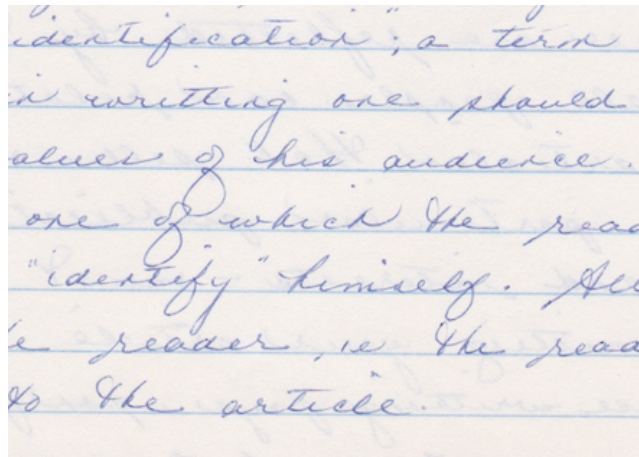 identification; a term
in writting one should
alues of his audience.
one of which the read
"identify" himself. All
e reader, ie the read
to the article.